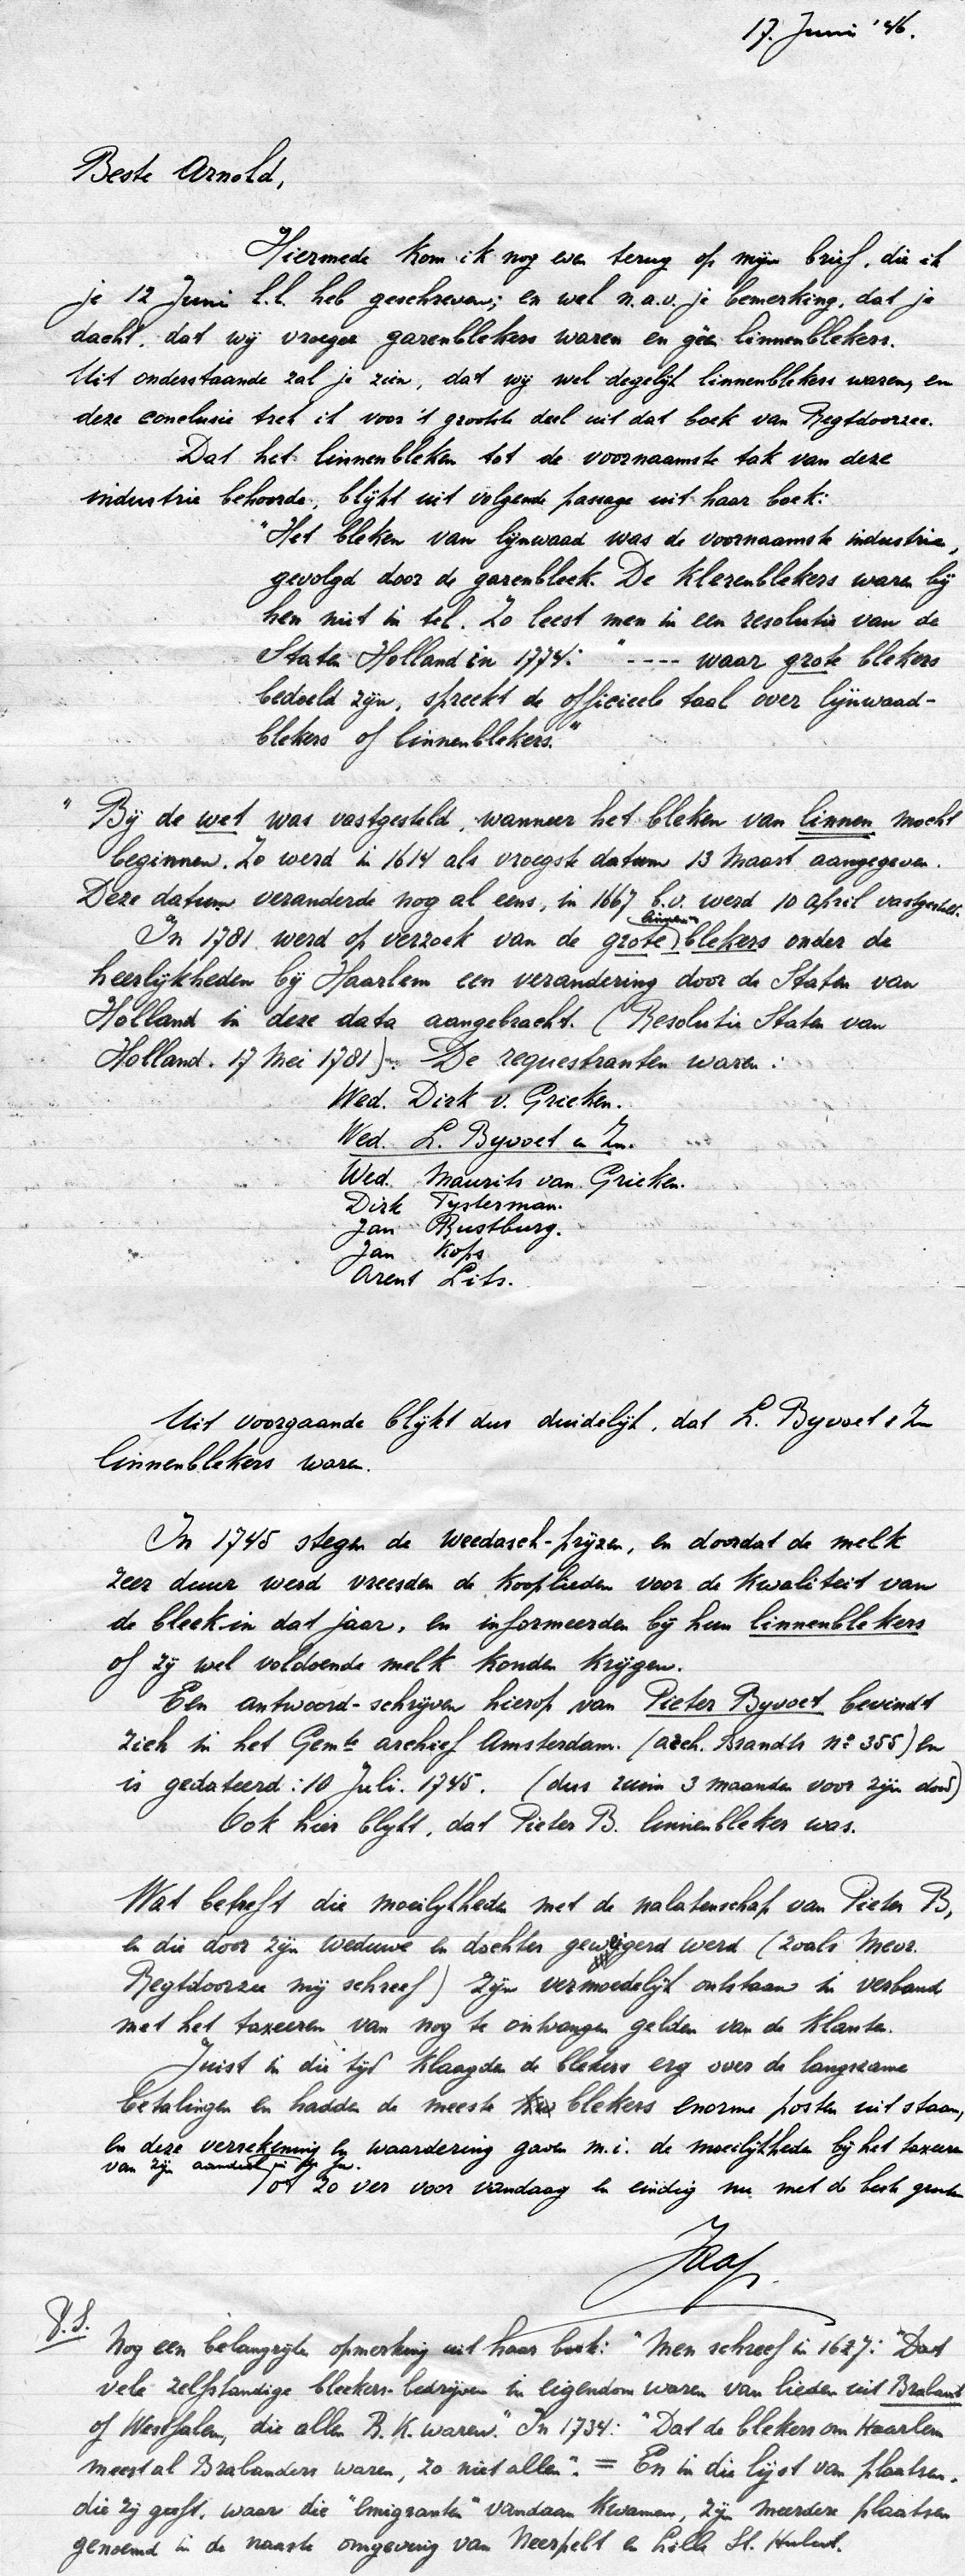 17. Juni '46.
Beste Arnold,
Hiermede kom ik nog even terug op mijn brief, die ik
je 12 Juni l.l. heb geschreven; en wel n.a.v. je bemerking, dat je
dacht, dat wij vroeger garenblekers waren en géén linnenblekers.
Uit onderstaande zal je zien, dat wij wel degelijk linnenblekers waren, en
deze conclusie trek ik voor 't grootste deel uit dat boek van Regtdoorzee.
Dat het linnenbleken tot de voornaamste tak van deze
industrie behoorde, blijkt uit volgende passage uit haar boek:
"Het bleken van lijnwaad was de voornaamste industrie,
gevolgd door de garenbleek. De klerenblekers waren bij
hen niet in tel. Zo leest men in een resolutie van de
Staten Holland in 1774: "---- waar grote blekers
bedoeld zijn, spreekt de officieele taal over lijnwaad-
blekers of linnenblekers."
" Bij de wet was vastgesteld, wanneer het bleken van linnen mocht
beginnen. Zo werd in 1614 als vroegste datum 13 Maart aangegeven.
Deze datum veranderde nog al eens, in 1667 b.v. werd 10 april vastgesteld.
In 1781 werd op verzoek van de grote (linnen) blekers onder de
heerlijkheden bij Haarlem een verandering door de Staten van
Holland in deze data aangebracht. (Resolutie Staten van
Holland. 17 Mei 1781)". De requestranten waren:
Wed. Dirk v. Grieken.
Wed. L. Byvoet en Zn.
Wed. Maurits van Grieken.
Dirk Tysterman.
Jan Rustburg.
Jan Kops
Arent Lits.
Uit voorgaande blijkt dus duidelijk, dat L. Byvoet & Zn
linnenblekers waren.
In 1745 stegen de weedasch-prijzen, en doordat de melk
zeer duur werd vreesden de kooplieden voor de kwaliteit van
de bleek in dat jaar, en informeerden bij hun linnenblekers
of zij wel voldoende melk konden krijgen.
Een antwoord-schrijven hierop van Pieter Byvoet bevindt
zich in het Gemte archief Amsterdam. (arch. Brandts no 355) en
is gedateerd: 10 Juli. 1745. (dus ruim 3 maanden voor zijn dood)
Ook hier blijkt, dat Pieter B. linnenbleker was.
Wat betreft die moeilijkheden met de nalatenschap van Pieter B,
en die door zijn weduwe en dochter geweigerd werd (zoals Mevr.
Regtdoorzee mij schreef) zijn vermoedelijk ontstaan in verband
met het taxeeren van nog te ontvangen gelden van de klanten.
Juist in die tijd klaagden de blekers erg over de langzame
betalingen en hadden de meeste blekers enorme posten uit staan,
en deze verrekening en waardering gaven m.i. de moeilijkheden bij het taxeeren
van zijn aandeel in
Tot zo ver voor vandaag en eindig nu met de beste groeten
Jaap
P.S.
Nog een belangrijke opmerking uit haar boek: "Men schreef in 1627: "Dat
vele zelfstandige bleekers-bedrijven in eigendom waren van lieden uit Brabant
of Westfalen, die allen R.K. waren." In 1734: "Dat de blekers om Haarlem
meestal Brabanders waren, zo niet allen". = En in die lijst van plaatsen,
die zij geeft, waar die "emigranten" vandaan kwamen, zijn meerdere plaatsen
genoemd in de naaste omgeving van Neerpelt en Lille St. Hubert.